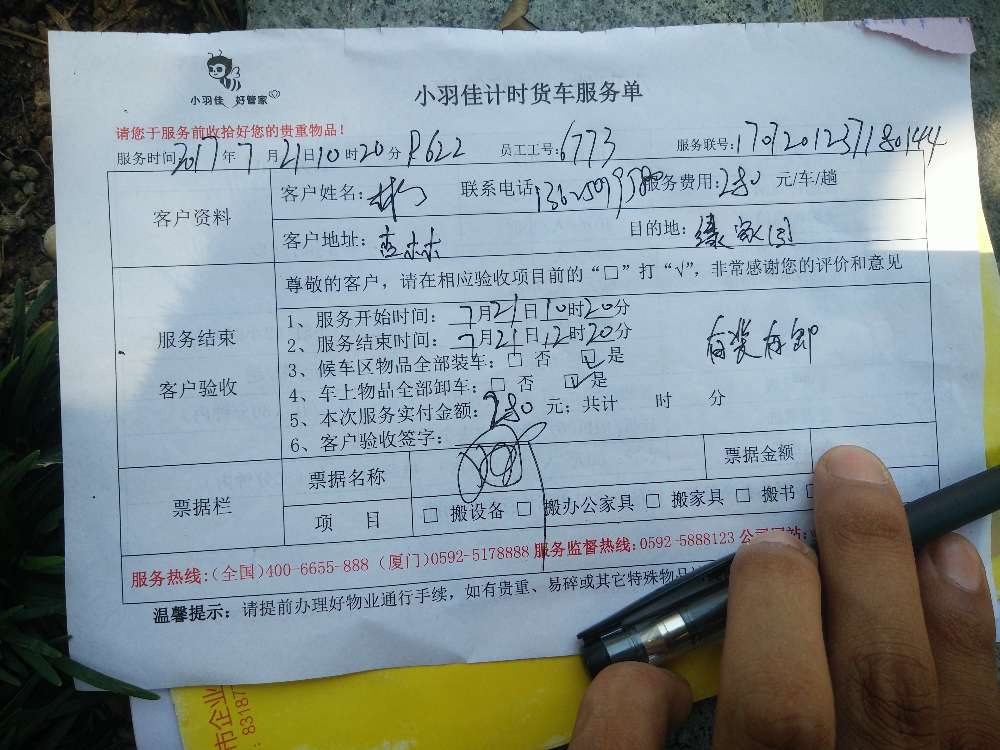 小羽佳 好管家
小羽佳计时货车服务单
请您于服务前收拾好您的贵重物品！
服务时间:2017年7月21日10时20分 R622 员工工号:6773 服务联号:17072012371180144
客户资料
客户姓名: 联系电话: 服务费用:280 元/车/趟
客户地址: 目的地:
尊敬的客户，请在相应验收项目前的“□”打“√”，非常感谢您的评价和意见
服务结束
客户验收
1、服务开始时间：7月21日10时20分
2、服务结束时间：7月21日12时20分
有装有卸
3、候车区物品全部装车：□ 否 ☑ 是
4、车上物品全部卸车：□ 否 ☑ 是
5、本次服务实付金额：280 元；共计 时 分
6、客户验收签字：
票据栏
票据名称 票据金额
项 目 □ 搬设备 □ 搬办公家具 □ 搬家具 □ 搬书
服务热线:(全国)400-6655-888 (厦门)0592-5178888 服务监督热线:0592-5888123 公司网站:
温馨提示：请提前办理好物业通行手续，如有贵重、易碎或其它特殊物品
市企业
: 83187